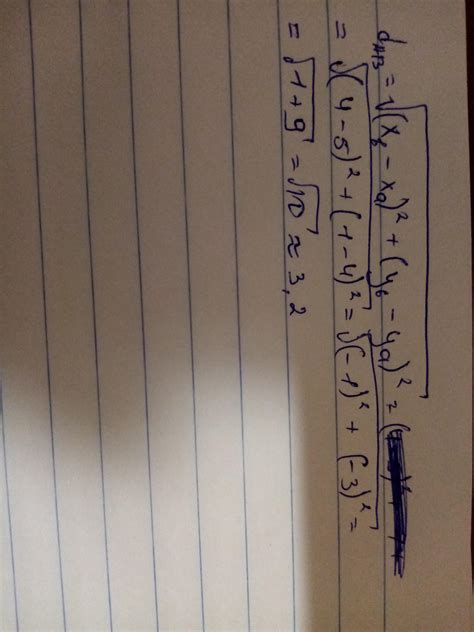 d_AB = √(x_b − x_a)² + (y_b − y_a)² =
= √(4−5)² + (1−4)² = √(−1)² + (−3)² =
= √1+9 = √10 ≈ 3,2